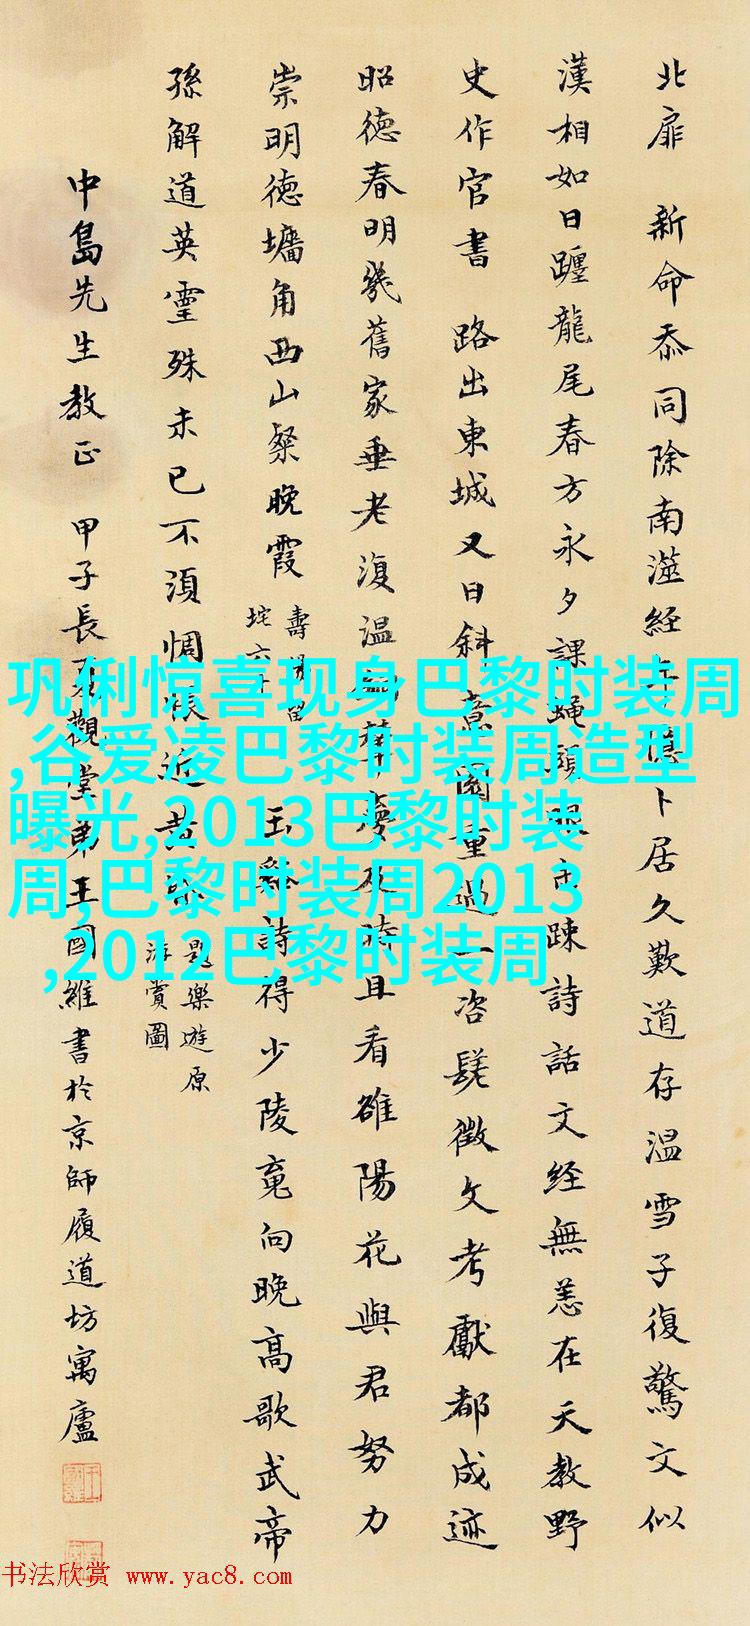 北扉 新命忝同除南澨经年卜居久歎道存温雪子復驚文似
漢相如日躔龍尾春方永夕課蠅頭眼未疎詩話文经無恙在天教野
史作官書 路出東城又日斜意園重過一咨嗟徵文考獻都成迹
昭德春明幾舊家垂老復温華夢及時且看雒陽花與君努力
崇明德墻角西山粲晚霞
壽楊留
垞六十
玉谿詩得少陵向晚高歌武帝
孫解道英靈殊未已不須惆悵近黄昏
題樂遊原
游賞圖
中島先生教正 甲子長夏觀堂弟王國維書於京師履道坊寓廬
巩俐惊喜现身巴黎时装周
,谷爱凌巴黎时装周造型
曝光,2013巴黎时装
周,巴黎时装周2013
,2012巴黎时装周
书法欣赏 www.yac8.com